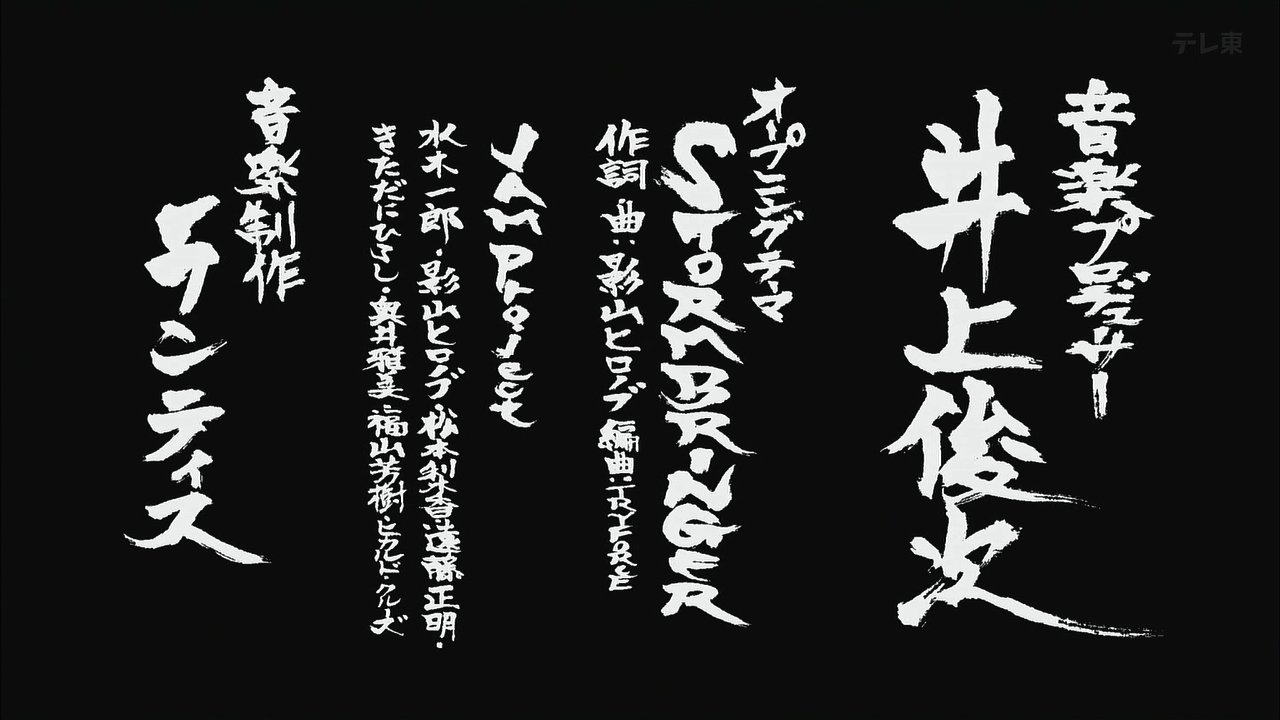 テレ東
音楽プロデューサー
井上俊次
オープニングテーマ
STORMBRINGER
作詞・曲:影山ヒロノブ 編曲:TRYFORCE
JAM Project
水木一郎・影山ヒロノブ・松本梨香・遠藤正明・
きただにひろし・奥井雅美・福山芳樹・ヒカルド・クルズ
音楽制作
ランティス